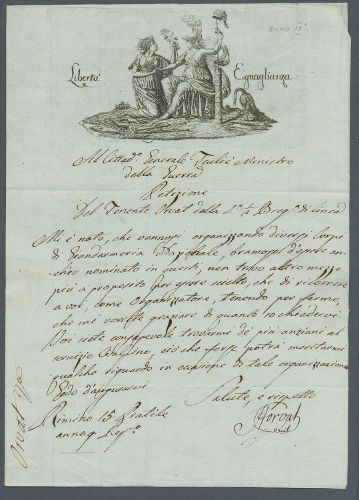 ANNO IX°
Libertà Eguaglianza
Al Cittad.° Generale Teulié Ministro
della Guerra
Petizione
Del Tenente Orvat della L.ª ½ Brig.ª di Linea
Mi è noto, che vannosi organizzando diversi Corpi
di Gendarmeria Nazionale, bramoso d'essere
anch'io nominato in questi, non trovo altro mezzo
più a proposito per essere scelto, che di ricorrere
a voi, come Organizzatore, tenendo per fermo,
che mi vorrete graziare di quanto io chiedervi
Voi siete consapevole trovarmi de' più anziani al
servizio, ciò che forse potrà meritarmi
qualche riguardo in occasione di tale organizzazione
Godo d'augurarvi
Salute, e rispetto
Rimino 15 Pratile
anno 9 Rep.°
Orvat